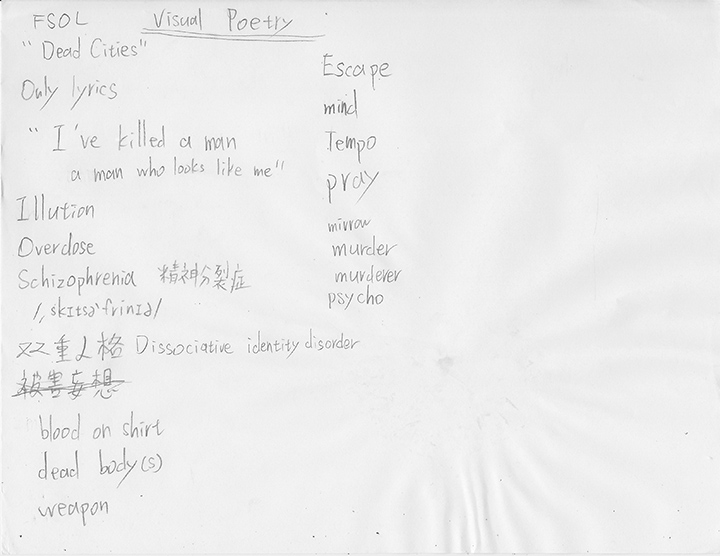 FSOL Visual Poetry
"Dead Cities"
Only lyrics
"I've killed a man
a man who looks like me"
Illution
Overdose
Schizophrenia 精神分裂症
/ˌskɪtsəˈfrinɪə/
双重人格 Dissociative identity disorder
被害妄想
blood on shirt
dead body(s)
weapon
Escape
mind
Tempo
pray
mirrow
murder
murderer
psycho